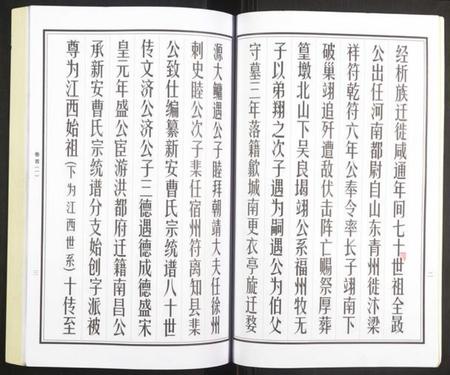 经析族迁徙咸通年间七十世祖全晸
公出任河南都尉自山东青州徙汴梁
祥符乾符六年公奉令率长子翊南下
破巢翊追歼遭敌伏击阵亡赐祭厚葬
篁墩北山下吴良堨翊公系福州牧无
子以弟翔之次子遇为嗣遇公为伯父
守墓三年落籍歙城南更衣亭旋迁婺
二
源大鳙遇公子睦拜朝靖大夫任徐州
刺史睦公次子䒹任宿州符离知县䒹
公致仕编纂新安曹氏宗统谱八十世
传文济公济公子三德遇德成德盛宋
皇元年盛公宦游洪都府迁籍南昌公
承新安曹氏宗统谱分支始创字派被
尊为江西始祖(下为江西世系)十传至
卷首(一)
三